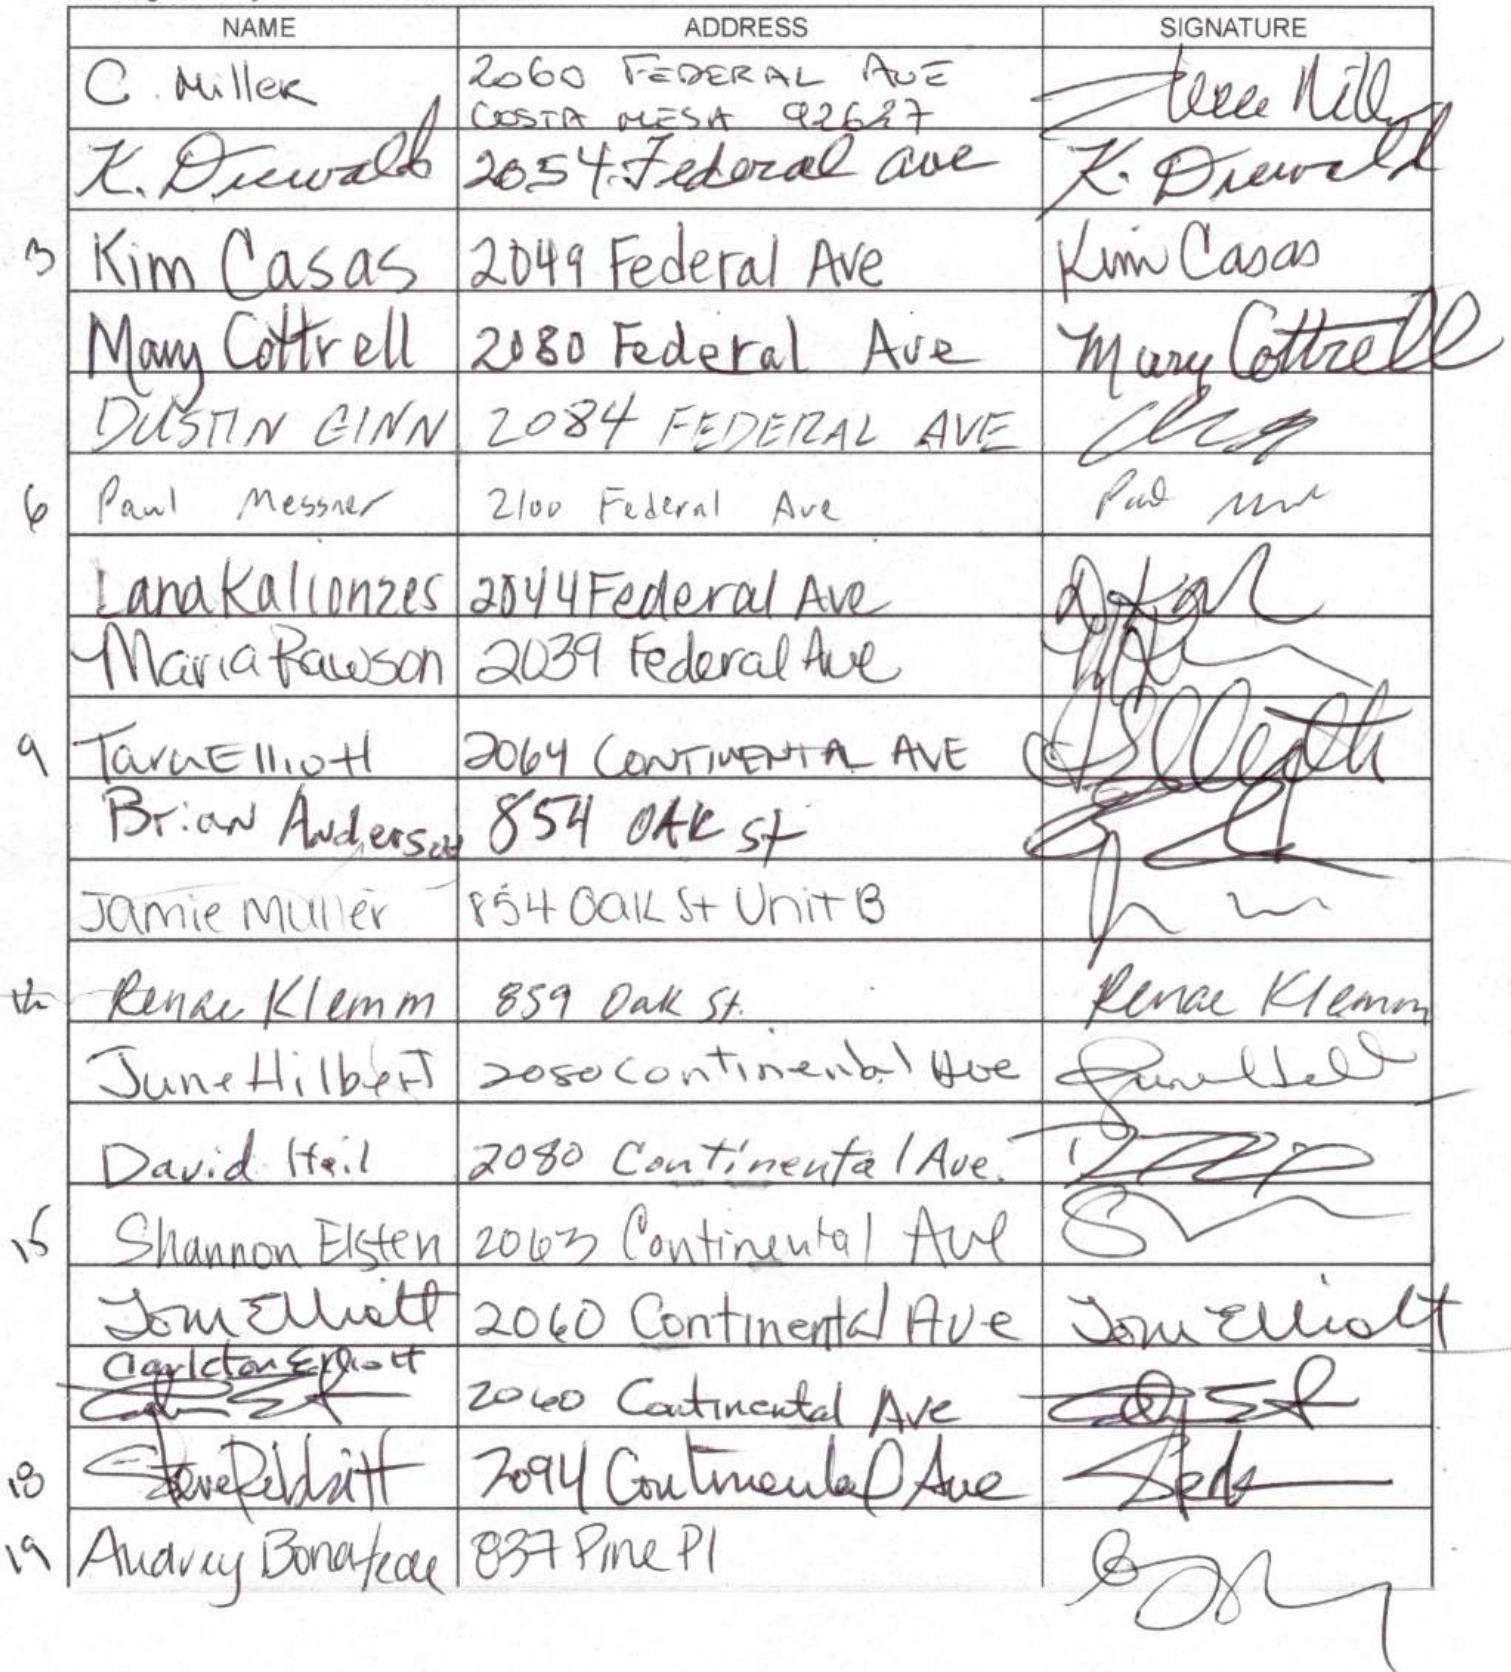 NAME ADDRESS SIGNATURE
C. Miller 2060 FEDERAL AVE
COSTA MESA 92627
K. Diewald 2054 Federal ave K. Diewald
3 Kim Casas 2049 Federal Ave Kim Casas
Mary Cottrell 2080 Federal Ave Mary Cottrell
DUSTIN GINN 2084 FEDERAL AVE
6 Paul Messner 2100 Federal Ave Paul
Lana Kalionzes 2044 Federal Ave
Maria Rawson 2039 Federal Ave
9 Tara Elliott 2064 CONTINENTAL AVE
Brian Anderson 854 OAK St
Jamie Muller 854 Oak St Unit B
12 Renae Klemm 859 Oak St. Renae Klemm
June Hilbert 2080 Continental Ave
David Heil 2080 Continental Ave.
15 Shannon Elsten 2063 Continental Ave
Tom Elliott 2060 Continental Ave Tom Elliott
Carleton Elliott
2060 Continental Ave
18 Steve 2094 Continental Ave
19 Audrey 837 Pine Pl